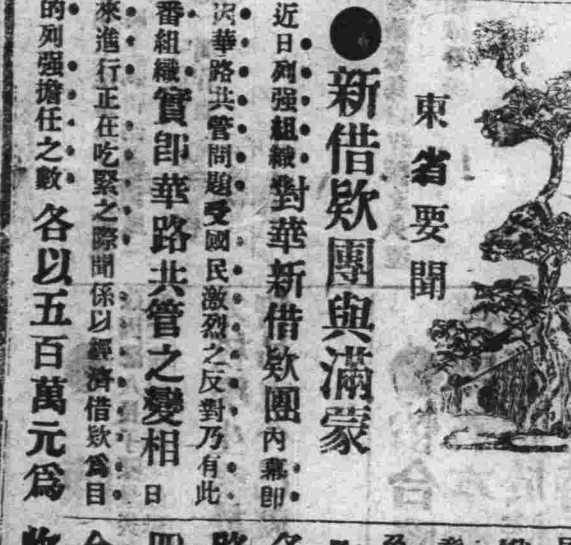 東省要聞
●新借欵團與滿蒙
近日列强組織對華新借欵團內幕卽
因華路共管問題受國民激烈之反對乃有此
番組織實卽華路共管之變相日
來進行正在吃緊之際聞係以經濟借欵爲目
的列强擔任之數各以五百萬元爲